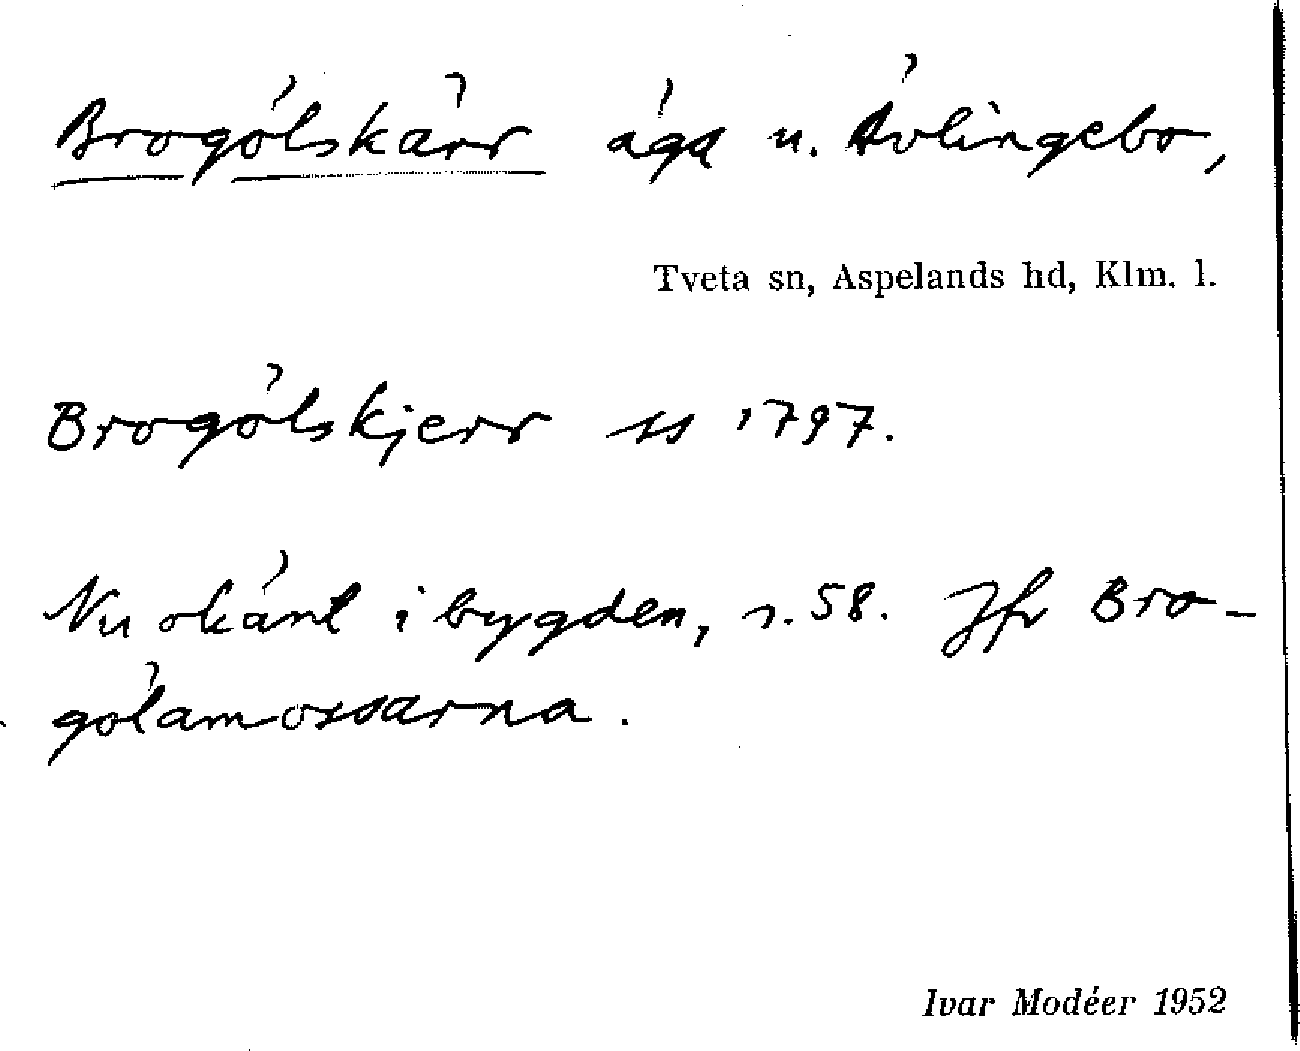 Brogölskärr äga u. Ävlingebo,
Tveta sn, Aspelands hd, Klm. l.
Brogölskjerr ss 1797.
Nu okänt i bygden, s. 58. Jfr Bro-
gölamossarna.
Ivar Modéer 1952